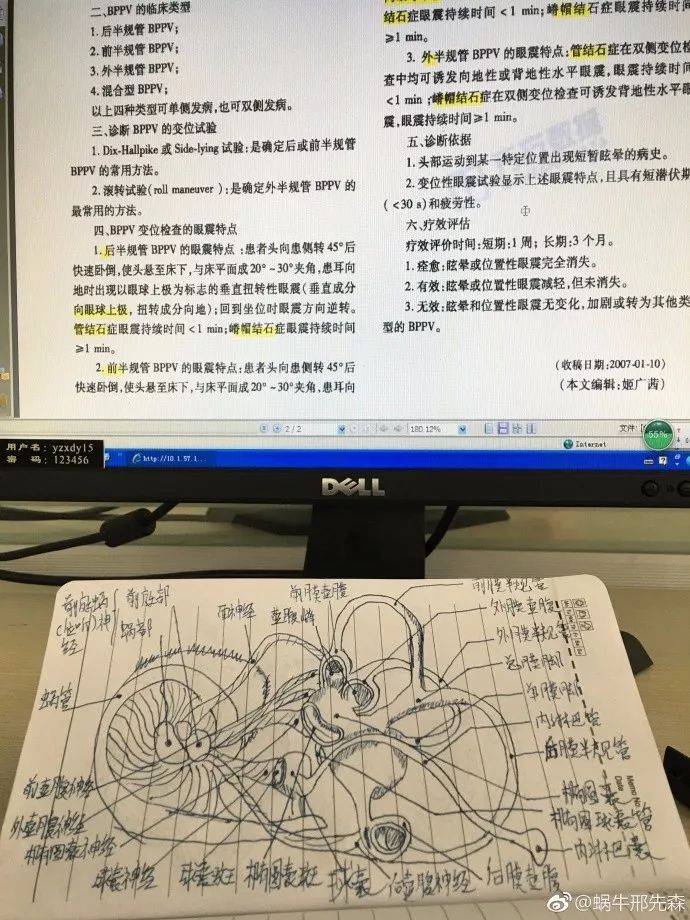 二、BPPV 的临床类型
1. 后半规管 BPPV;
2. 前半规管 BPPV;
3. 外半规管 BPPV;
4. 混合型 BPPV;
以上四种类型可单侧发病,也可双侧发病。
三、诊断 BPPV 的变位试验
1. Dix-Hallpike 或 Side-lying 试验:是确定后或前半规管
BPPV 的常用方法。
2. 滚转试验(roll maneuver):是确定外半规管 BPPV 的
最常用的方法。
四、BPPV 变位检查的眼震特点
1. 后半规管 BPPV 的眼震特点:患者头向患侧转 45°后
快速卧倒,使头悬至床下,与床平面成 20°~30°夹角,患耳向
地时出现以眼球上极为标志的垂直扭转性眼震(垂直成分
向眼球上极,扭转成分向地);回到坐位时眼震方向逆转。
管结石症眼震持续时间<1 min;嵴帽结石症眼震持续时间
≥1 min。
2. 前半规管 BPPV 的眼震特点:患者头向患侧转 45°后
快速卧倒,使头悬至床下,与床平面成 20°~30°夹角,患耳向
结石症眼震持续时间<1 min;嵴帽结石症眼震持续时间
≥1 min。
3. 外半规管 BPPV 的眼震特点:管结石症在双侧变位检
查中均可诱发向地性或背地性水平眼震,眼震持续时间
<1 min;嵴帽结石症在双侧变位检查可诱发背地性水平眼
震,眼震持续时间≥1 min。
五、诊断依据
1. 头部运动到某一特定位置出现短暂眩晕的病史。
2. 变位性眼震试验显示上述眼震特点,且具有短潜伏期
(<30 s)和疲劳性。
六、疗效评估
疗效评价时间:短期:1 周;长期:3 个月。
1. 痊愈:眩晕或位置性眼震完全消失。
2. 有效:眩晕或位置性眼震减轻,但未消失。
3. 无效:眩晕和位置性眼震无变化,加剧或转为其他类
型的 BPPV。
(收稿日期:2007-01-10)
(本文编辑:姬广茜)
2/2
180.12%
文件:
55%
Internet
用户名:yzxdy15
密 码:123456
http://10.1.57.1...
DELL
前庭蜗
神
经
前庭部
蜗部
面神经
壶腹嵴
前膜壶腹
前膜半规管
外膜壶腹
外膜半规管
总膜脚
单膜脚
内淋巴管
后膜半规管
椭圆囊
椭圆球囊管
内淋巴囊
蜗管
前壶腹神经
外壶腹神经
椭圆囊神经
球囊神经
球囊斑
椭圆囊斑
球囊
后壶腹神经
后膜壶腹
Memo No.
Date
@蜗牛邢先森